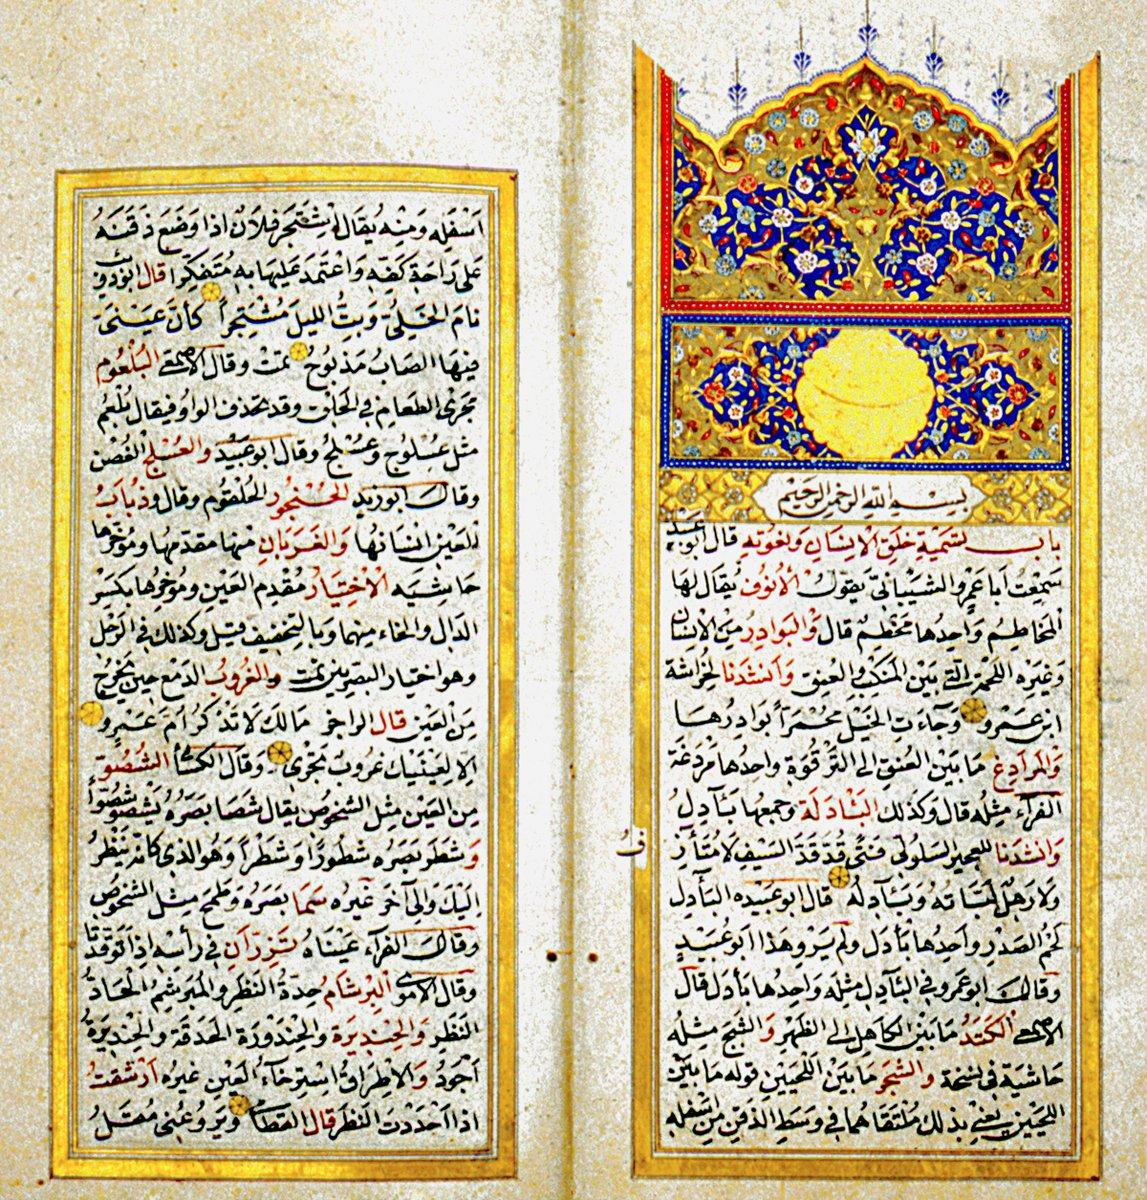 بسم الله الرحمن الرحيم
باب تسمية خلق الإنسان ونعوته قال أبو عبيد
سَمِعْتُ أبا عَمْرٍو الشيبانيّ يقول الأنُوف يُقال لها
المخاطِم وَاحِدُها مَخْطِم قال وَالبَوَادِر من الإنسان
وَغيْرِه اللحمة التي بَيْن المنكِب والعنق وَأنشَدَنا لخراشة
ابن عمرو وجَاءَت الخيل مُحْمَرّاً بَوَادِرُها
وَالمرَادِغ مَا بَيْن العنق إلى التّرقُوة واحدُها مَرْدَغَة
الفرّاء مِثْلِه قال وَكذلك البَآدلَة وجمعها بَآدِل
وَانشدَنا للعجير السلولي فتًى قُدَّ قدّ السيف لا مُتَأزِف
وَلا رَهِل لبَّاته وَبَآدِلُه قال ابو عبيده البَآدِل
لحْم الصَدْرِ واحدُها بَأدَل ولم يَرْو هذا ابو عُبَيدٍ
وقال ابو عمرو في البَآدِل مثله وَاحِدُها بَأدَل قال
الاصمعي الكَتَدُ مَا بَين الكاهِل إلى الظهْرِ وَالثبَج مِثلُه
حَاشية في نسخة والشَجْر مَا بَيْن اللحيَيْن قوله ما بَيْن
اللحيَيْن يعني بذلك مُلْتقاهُما في وَسَطِ الذقن مِن اسْفَلِه
اَسْفَلِه وَمِنْه يُقال اِشتَجَر فلانٌ اذا وَضَع ذَقَنَهُ
عَلى رَاحَةِ كَفّه وَاعْتمَد عَليهَا به مُتفكّرا قال ابو ذويب
نامَ الخَليّ وَبِتُّ الليلَ مُشْتجِراً كأنّ عَيْنيَ
فيها الصَابُ مَذبُوحُ تمت وقال الاصمعي البُلْعُوم
مَجرَى الطعَام في الحَلق وقد تحذف الواو فيقال بُلْعُم
مثل عُسْلوج وعُسْلُج وقال ابو عُبَيْد والعُسْلُج الغُصْن
وقال ابو زيد الحُنْجُور الحُلقُوم وقال وذُبَابُ
العَيْنِ انسَانُها وَالغَرْبَانِ مِنْها مقدمُها ومُؤخّرها
حَاشِيَه الاخْتِيَارُ مُقْدِم العَيْنِ ومُؤخِرُها بكَسْرِ
الدَال والخاء مِنهما وَبالتخفيف قيل وَكذلك في الرَحْل
وهو اختيار البصريين تمت والغُرُوب الدَمْع حِين يَخْرُج
مِنَ العَيْن قال الراجز مَا لَكَ لَا تَذْكُر امّ عَمْرٍو
اِلّا لِعَيْنَيْكَ غُرُوبٌ تَجْرِي وَقال الكسائي الشُصُوّ
مِن العَيْن مِثل الشخُوصِ يقال شَصَا بَصَرُهُ يَشْصُو شُصُوّاً
وَشَطَر بَصَرُه شُطُورًا وَشَطْراً وَهو الذي كأنّه يَنْظُرُ
اِلَيْكَ وَإلى آخَر غَيْرِه سَمَا بَصَرُهُ وَطَمَحَ مِثل الشخُوص
وَقال الفرّاء عَيْنَاهُ تَزِرّانِ في رأسِه اِذا توقّدتا
وقال الاموي البِرْشَام حِدّةُ النظَر وَالمُبَرْشِمُ الحَادّ
النظَرِ وَالحِنْدِيرَة وَالحِنْدَوْرَة الحَدَقَة وَالحِنْدِيرَةُ
اَجْوَدُ وَالاِطرَاقُ اسْتِرخَاءُ العَيْنِ غيرُه اَرْشَقْتُ
اذا اَحْدَدْتَ النظَر قال القطامي وَيَرُوعُنِي مُقَلُ